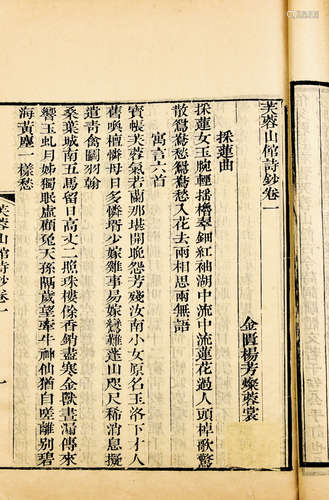 芙蓉山館詩鈔卷一
金匱楊芳燦蓉裳
採蓮曲
採蓮女玉腕輕搖櫓翠鈿紅袖湖中流中流蓮花過人頭棹歌驚
散鴛鴦愁鴛鴦愁入花去兩相思兩無語
寓言六首
寶帳芙蓉氣若蘭那堪開晚怨芳殘汝南小女原名玉洛下才人
舊喚檀憐母日多憐壻少嫁雞事易嫁鸞難蓬山咫尺稀消息擬
遣青禽刷羽翰
桑葉城南五馬留日高丈二照珠樓餘香銷盡寒金獸晝漏傳來
響玉虬月姊獨眠虛顧兔天孫隔歲望牽牛神仙猶自嗟離別碧
海黃塵一樣愁
芙蓉山館詩鈔卷一
一